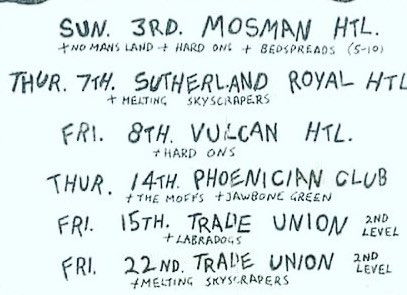 SUN. 3RD. MOSMAN HTL.
+NO MANS LAND + HARD ONS + BEDSPREADS (5-10)
THUR. 7TH. SUTHERLAND ROYAL HTL
+ MELTING SKYSCRAPERS
FRI. 8TH. VULCAN HTL.
+HARD ONS
THUR. 14TH. PHOENICIAN CLUB
+THE MOFFS +JAWBONE GREEN
FRI. 15TH. TRADE UNION 2ND LEVEL
+LABRADOGS
FRI. 22ND. TRADE UNION 2ND LEVEL
+MELTING SKYSCRAPERS